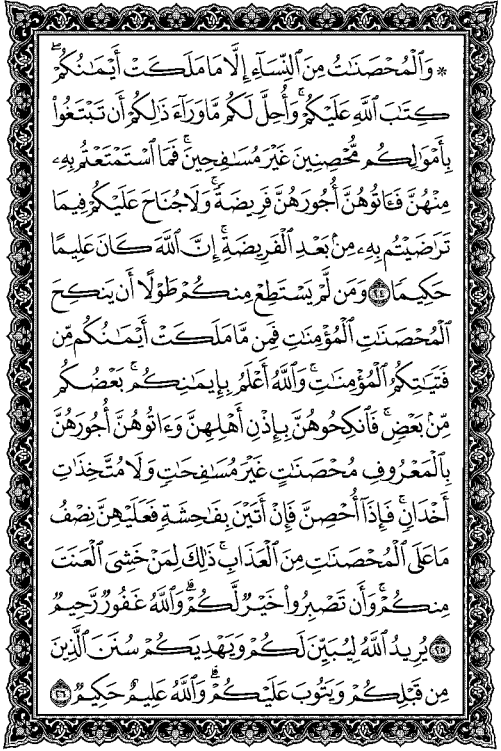 * وَالْمُحْصَنَاتُ مِنَ النِّسَاءِ إِلَّا مَا مَلَكَتْ أَيْمَانُكُمْ ۖ
كِتَابَ اللَّهِ عَلَيْكُمْ ۚ وَأُحِلَّ لَكُم مَّا وَرَاءَ ذَالِكُمْ أَن تَبْتَغُوا
بِأَمْوَالِكُم مُّحْصِنِينَ غَيْرَ مُسَافِحِينَ ۚ فَمَا اسْتَمْتَعْتُم بِهِ
مِنْهُنَّ فَـَٔاتُوهُنَّ أُجُورَهُنَّ فَرِيضَةً ۚ وَلَا جُنَاحَ عَلَيْكُمْ فِيمَا
تَرَاضَيْتُم بِهِ مِن بَعْدِ الْفَرِيضَةِ ۚ إِنَّ اللَّهَ كَانَ عَلِيمًا
حَكِيمًا ٢٤ وَمَن لَّمْ يَسْتَطِعْ مِنكُمْ طَوْلًا أَن يَنكِحَ
الْمُحْصَنَاتِ الْمُؤْمِنَاتِ فَمِن مَّا مَلَكَتْ أَيْمَانُكُم مِّن
فَتَيَاتِكُمُ الْمُؤْمِنَاتِ ۚ وَاللَّهُ أَعْلَمُ بِإِيمَانِكُم ۚ بَعْضُكُم
مِّن بَعْضٍ ۚ فَانكِحُوهُنَّ بِإِذْنِ أَهْلِهِنَّ وَءَاتُوهُنَّ أُجُورَهُنَّ
بِالْمَعْرُوفِ مُحْصَنَاتٍ غَيْرَ مُسَافِحَاتٍ وَلَا مُتَّخِذَاتِ
أَخْدَانٍ ۚ فَإِذَا أُحْصِنَّ فَإِنْ أَتَيْنَ بِفَاحِشَةٍ فَعَلَيْهِنَّ نِصْفُ
مَا عَلَى الْمُحْصَنَاتِ مِنَ الْعَذَابِ ۚ ذَالِكَ لِمَنْ خَشِيَ الْعَنَتَ
مِنكُمْ ۚ وَأَن تَصْبِرُوا خَيْرٌ لَّكُمْ ۗ وَاللَّهُ غَفُورٌ رَّحِيمٌ
٢٥ يُرِيدُ اللَّهُ لِيُبَيِّنَ لَكُمْ وَيَهْدِيَكُمْ سُنَنَ الَّذِينَ
مِن قَبْلِكُمْ وَيَتُوبَ عَلَيْكُمْ ۗ وَاللَّهُ عَلِيمٌ حَكِيمٌ ٢٦